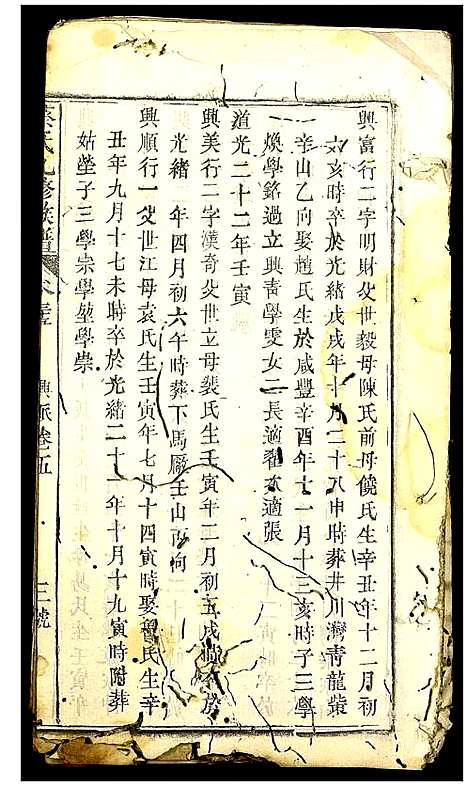 興富行二字明財父世毅母陳氏前母饒氏生辛丑年十二月初
六亥時卒於光緒戊戌年十月二十八申時葬井川灣青龍嶺
辛山乙向娶趙氏生於咸豐辛酉年十一月十三亥時子三學
煥學銘過立興青學雯女二長適翟次適張
道光二十二年壬寅
興美行二字漢奇父世立母裴氏生壬寅年二月初五戌時卒於
光緒年四月初六午時葬下馬廠壬山丙向
興順行一父世江母袁氏生壬寅年七月十四寅時娶魯氏生辛
丑年九月十七未時卒於光緒二十一年十月十九寅時附葬
姑塋子三學崇學堃學崇
蔡氏九修族譜
興派卷五
三號